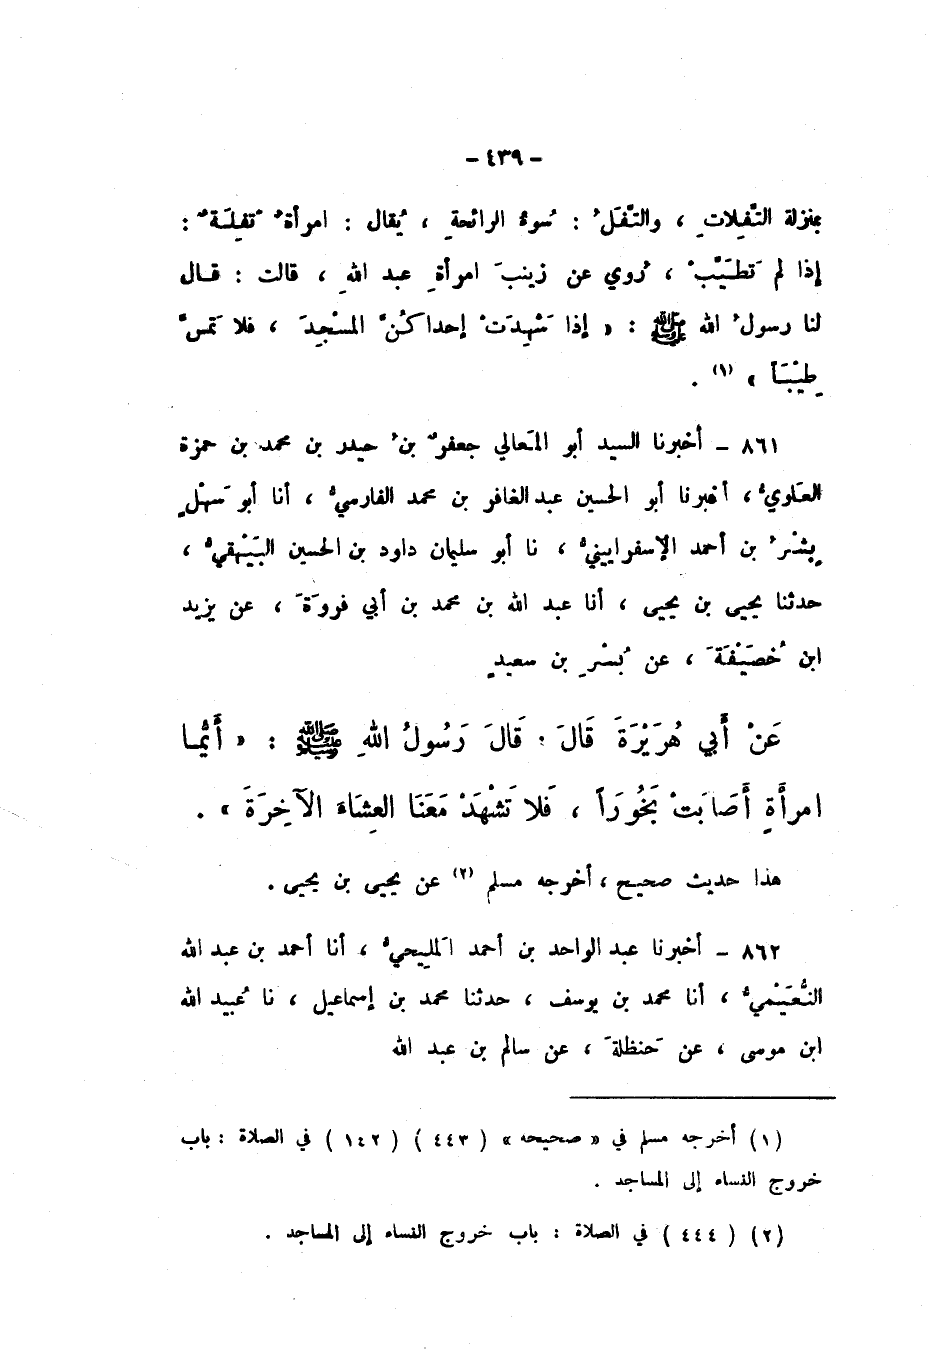 - ٤٣٩ -
بمنزلة التَّفِلاتِ ، والتَّفَلُ : سُوءُ الرائحةِ ، يُقال : امرأةٌ تَفِلَةٌ :
إذا لم تَطيَّبْ ، رُوي عن زينبَ امرأةِ عبد اللهِ ، قالت : قال
لنا رسولُ الله ﷺ : « إذا شَهِدَتْ إحداكُنَّ المسْجِدَ ، فلا تمَسَّ
طِيْبَاً » (١) .
٨٦١ - أخبرنا السيد أبو المَعالي جعفرٌ بنُ حيدر بن محمد بن حمزة
العَلويُّ ، أخبرنا أبو الحسين عبد الغافر بن محمد الفارسيُّ ، أنا أبو سَهْلٍ
بِشْرُ بن أحمد الإسفرايينيُّ ، نا أبو سليمان داود بن الحسين البَيْهقيُّ ،
حدثنا يحيى بن يحيى ، أنا عبد الله بن محمد بن أبي فروَةَ ، عن يزيد
ابن خُصَيْفَةَ ، عن بُسْرِ بن سعيدٍ
عَنْ أَبي هُرَيْرَةَ قَالَ : قَالَ رَسُولُ اللهِ ﷺ : « أَيُّما
امرأَةٍ أَصَابَتْ بَخُورَاً ، فَلا تَشْهَدْ مَعَنَا العِشَاءَ الآخِرَةَ » .
هذا حديث صحيح ، أخرجه مسلم (٢) عن يحيى بن يحيى .
٨٦٢ - أخبرنا عبد الواحد بن أحمد المَليحيُّ ، أنا أحمد بن عبد الله
النُّعَيْميُّ ، أنا محمد بن يوسف ، حدثنا محمد بن إسماعيل ، نا عُبيد الله
ابن موسى ، عن حَنظلةَ ، عن سالم بن عبد الله
(١) أخرجه مسلم في « صحيحه » ( ٤٤٣ ) ( ١٤٢ ) في الصلاة : باب
خروج النساء إلى المساجد .
(٢) ( ٤٤٤ ) في الصلاة : باب خروج النساء إلى المساجد .